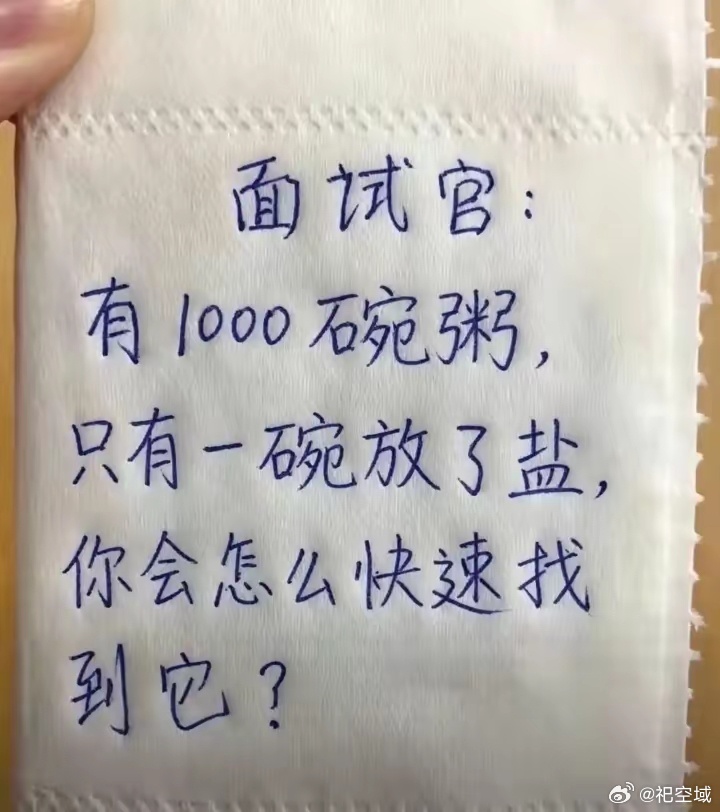 面试官：
有1000碗粥，
只有一碗放了盐，
你会怎么快速找
到它？
@祀空域